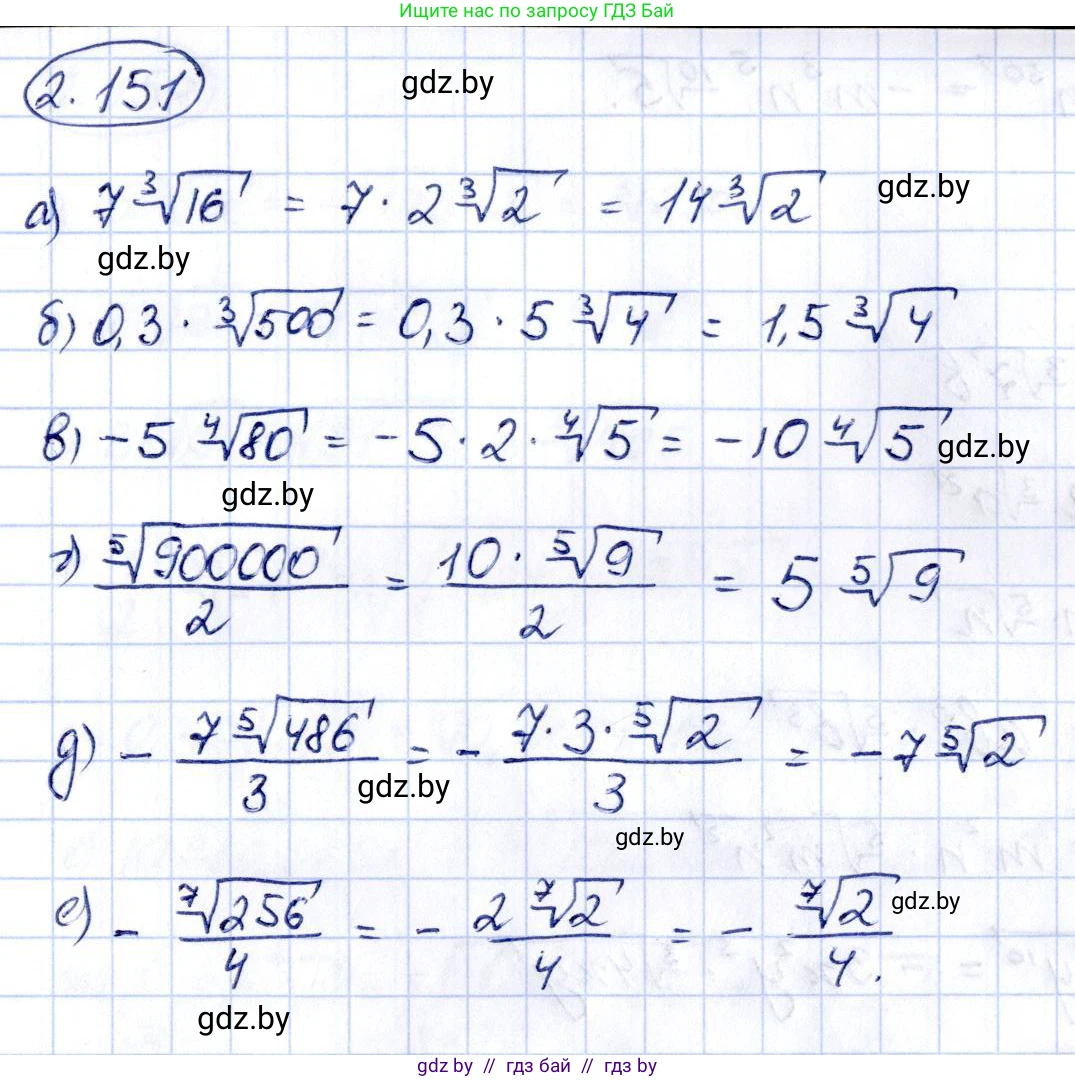 Ищите нас по запросу ГДЗ Бай
2.151
gdz.by
а) 7∛16 = 7 · 2∛2 = 14∛2
gdz.by
gdz.by
б) 0,3 · ∛500 = 0,3 · 5∛4 = 1,5∛4
в) -5 ∜80 = -5 · 2 · ∜5 = -10∜5
gdz.by
gdz.by
г) ⁵√900000 / 2 = 10 · ⁵√9 / 2 = 5 ⁵√9
д) - 7 ⁵√486 / 3 = - 7 · 3 · ⁵√2 / 3 = -7 ⁵√2
gdz.by
gdz.by
е) - ⁷√256 / 4 = - 2 ⁷√2 / 4 = - ⁷√2 / 4.
gdz.by
gdz.by
gdz by // гдз бай // gdz.by